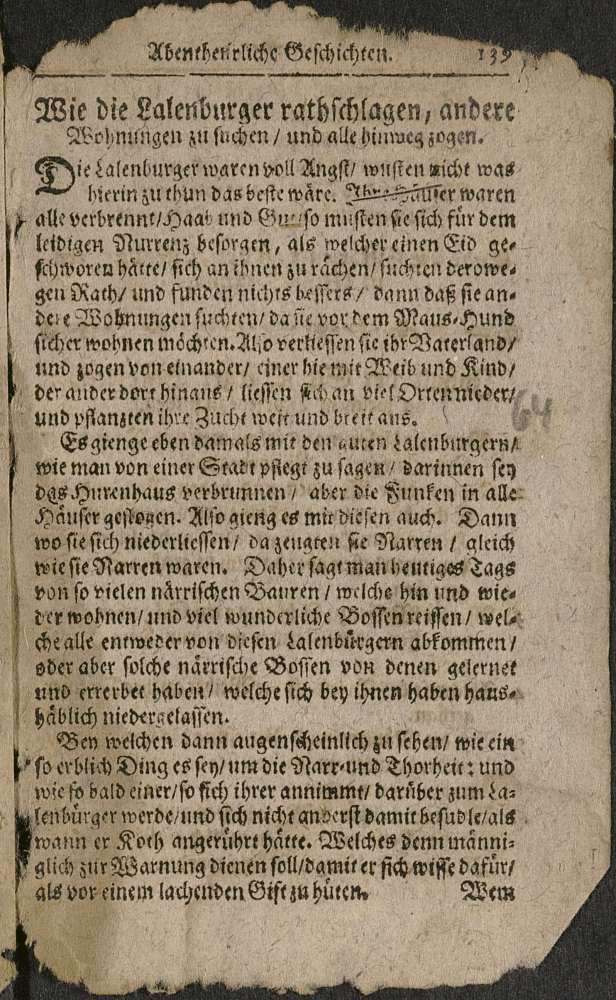 Abentheurliche Geschichten. 139
Wie die Lalenburger rathschlagen, andere
Wohnungen zu suchen / und alle hinweg zogen.
Die Lalenburger waren voll Angst/ wusten nicht was
hierin zu thun das beste wäre. Ihre Häuser waren
alle verbrennt/ Haab und Gut/ so musten sie sich für dem
leidigen Murrenz besorgen, als welcher einen Eid ge-
schworen hätte/ sich an ihnen zu rächen/ suchten derowe-
gen Rath/ und funden nichts bessers / dann daß sie an-
dere Wohnungen suchten/ da sie vor dem Maus-Hund
sicher wohnen möchten. Also verliessen sie ihr Vaterland/
und zogen von einander/ einer hie mit Weib und Kind/
der ander dort hinaus / liessen sich an viel Orten nieder/
und pflanzten ihre Zucht weit und breit aus.
64
Es gienge eben damals mit den guten Lalenburgern/
wie man von einer Stadt pflegt zu sagen/ darinnen sey
das Hurenhaus verbrunnen / aber die Funken in alle
Häuser geflogen. Also gieng es mit diesen auch. Dann
wo sie sich niederliessen/ da zeugten sie Narren / gleich
wie sie Narren waren. Daher sagt man heutiges Tags
von so vielen närrischen Bauren / welche hin und wie-
der wohnen/ und viel wunderliche Bossen reissen/ wel-
che alle entweder von diesen Lalenbürgern abkommen /
oder aber solche närrische Bossen von denen gelernet
und ererbet haben/ welche sich bey ihnen haben haus-
häblich niedergelassen.
Bey welchen dann augenscheinlich zu sehen/ wie ein
so erblich Ding es sey/ um die Narr- und Thorheit: und
wie so bald einer/ so sich ihrer annimmt/ darüber zum La-
lenbürger werde/ und sich nicht anderst damit besudle/ als
wann er Koth angerührt hätte. Welches denn männi-
glich zur Warnung dienen soll/ damit er sich wisse dafür/
als vor einem lachenden Gift zu hüten.
Wem